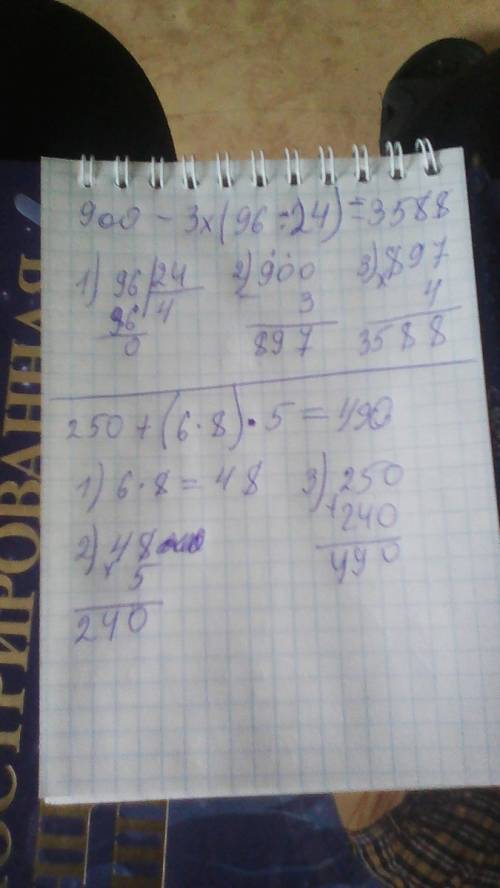 900 - 3x(96÷24)=3588
1) 96 24
96 4
0
2) 900
- 3
897
3) 897
x 4
3588
250 + (6·8)·5 = 490
1) 6·8 = 48
2) 48
x 5
240
3) 250
+ 240
490